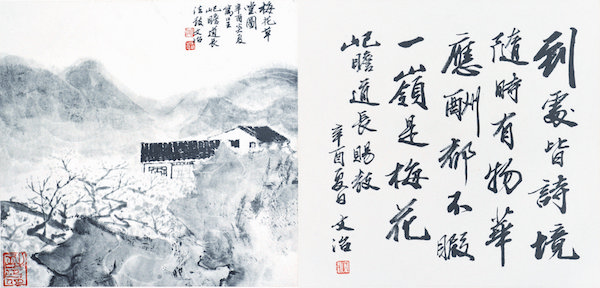 梅花草
堂圖
辛酉炎夏
寫呈
屺瞻道長
法教 文治
到處皆詩境
隨時有物華
應酬都不暇
一嶺是梅花
屺瞻道長賜教
辛酉夏日 文治